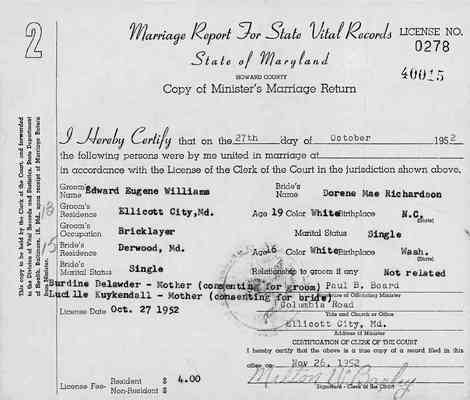 2
Marriage Report For State Vital Records
LICENSE NO.
0278
State of Maryland
40015
HOWARD COUNTY
Copy of Minister's Marriage Return
This copy to be held by the Clerk of the Court, and forwarded
to the Division of Vital Records and Statistics, State Department
of Health, Baltimore, 18, Md., upon receipt of Marriage Return
from Minister.
I Hereby Certify that on the 27th day of October 1952
the following persons were by me united in marriage at
in accordance with the License of the Clerk of the Court in the jurisdiction shown above.
Groom's Edward Eugene Williams Bride's Name Dorene Mae Richardson
Groom's Residence Ellicott City, Md. Age 19 Color White Birthplace N.C. (State)
Groom's Occupation Bricklayer Marital Status Single
Bride's Residence Derwood, Md. Age 16 Color White Birthplace Wash. (State)
Bride's Marital Status Single Relationship to groom if any Not related
Burdine Delawder - Mother (consenting for groom) Paul B. Board
Name of Officiating Minister
Lucille Kuykendall - Mother (consenting for bride)
Columbia Road
Title and Church or Office
License Date Oct. 27 1952
Ellicott City, Md.
Address of Minister
CERTIFICATION OF CLERK OF THE COURT
I hereby certify that the above is a true copy of a record filed in this
office on Nov 26, 1952
License Fee- Resident $ 4.00
Non-Resident $
Signature - Clerk of the Court